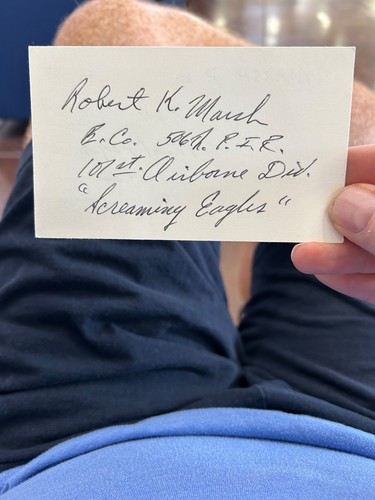 Robert K. Marsh
E. Co. 506th. P.I.R.
101st. Airborne Div.
"Screaming Eagles"